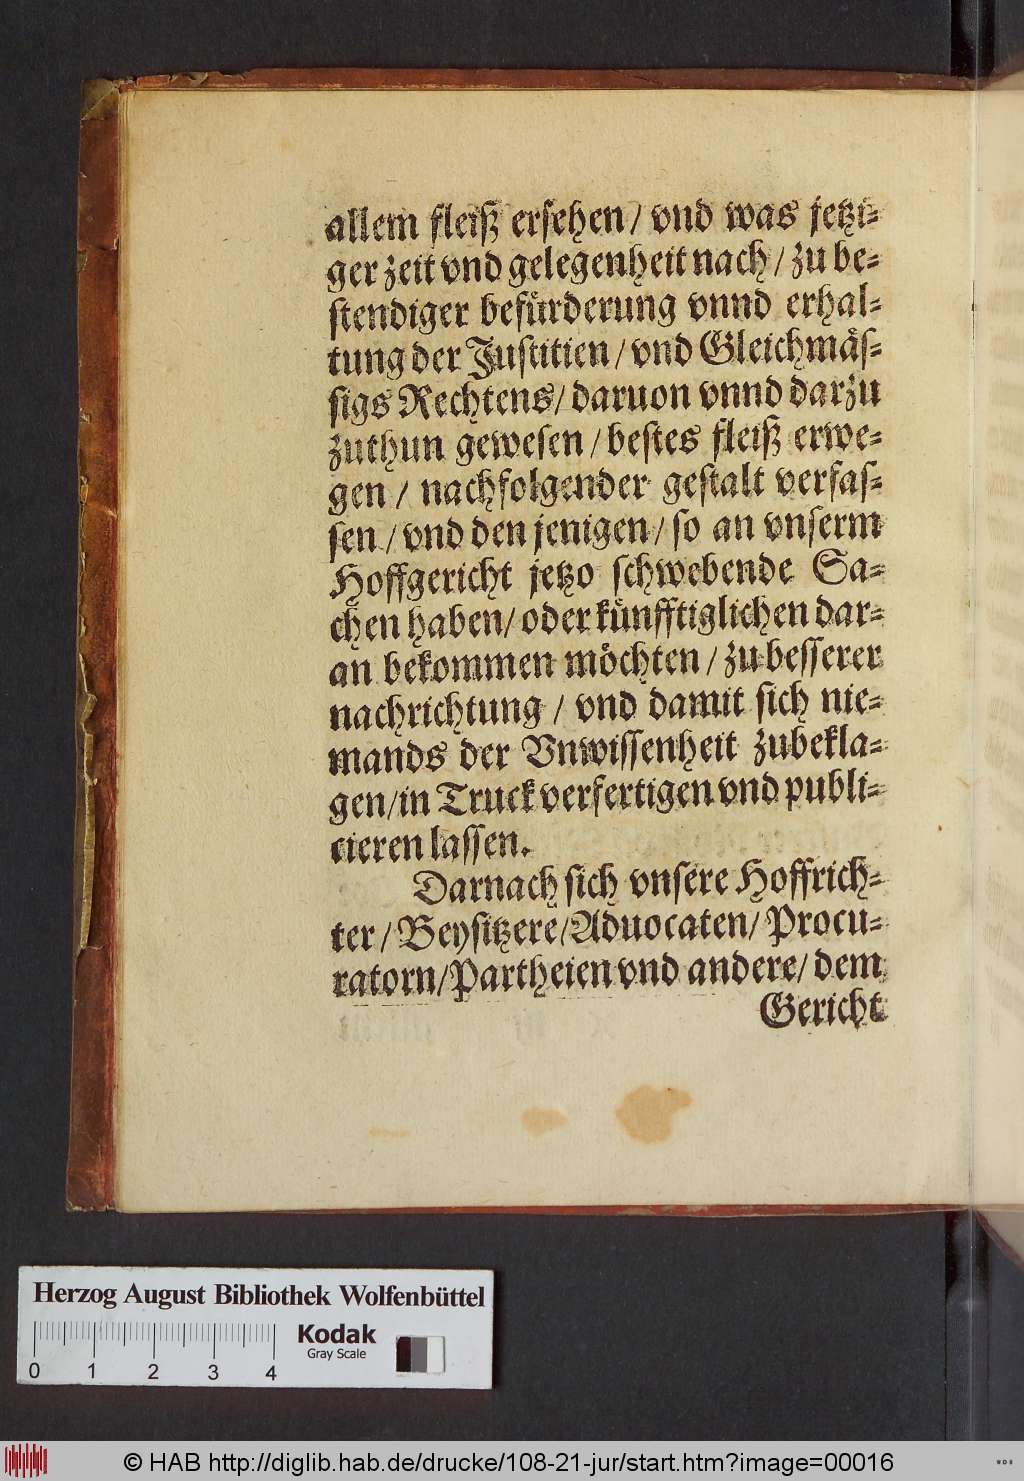 allem fleiß ersehen / vnd was jetzi-
ger zeit vnd gelegenheit nach / zu be-
stendiger befürderung vnnd erhal-
tung der Justitien / vnd Gleichmäs-
sigs Rechtens / daruon vnnd darzu
zuthun gewesen / bestes fleiß erwe-
gen / nachfolgender gestalt verfas-
sen / vnd den jenigen / so an vnserm
Hoffgericht jetzo schwebende Sa-
chen haben / oder künfftiglichen dar-
an bekommen möchten / zu besserer
nachrichtung / vnd damit sich nie-
mands der Vnwissenheit zubekla-
gen / in Truck verfertigen vnd publi-
cieren lassen.
Darnach sich vnsere Hoffrich-
ter / Beysitzere / Aduocaten / Procu-
ratorn / Partheien vnd andere / dem
Gericht
Herzog August Bibliothek Wolfenbüttel
Kodak
Gray Scale
0 1 2 3 4
© HAB http://diglib.hab.de/drucke/108-21-jur/start.htm?image=00016